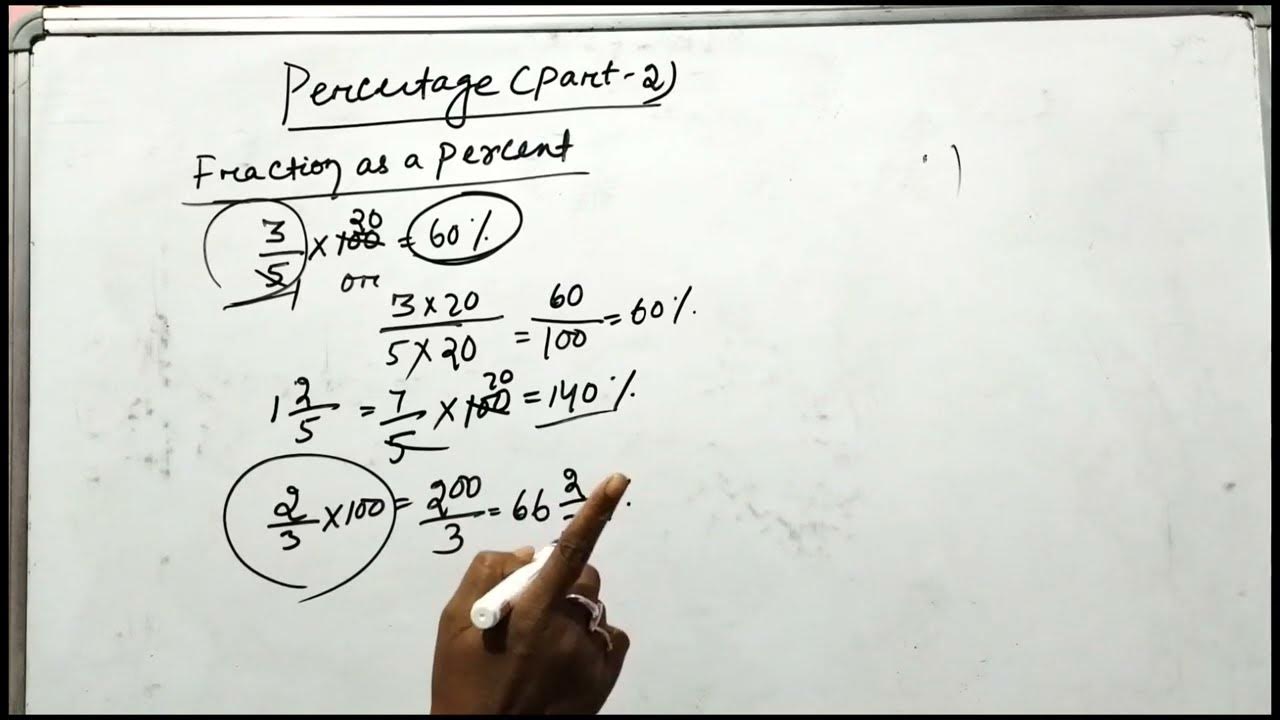 Percentage (Part-2)
Fraction as a percent
3/5 × 100 20 = 60%
or
3 × 20 / 5 × 20 = 60/100 = 60%
1 2/5 = 7/5 × 100 20 = 140%
2/3 × 100 = 200/3 = 66 2